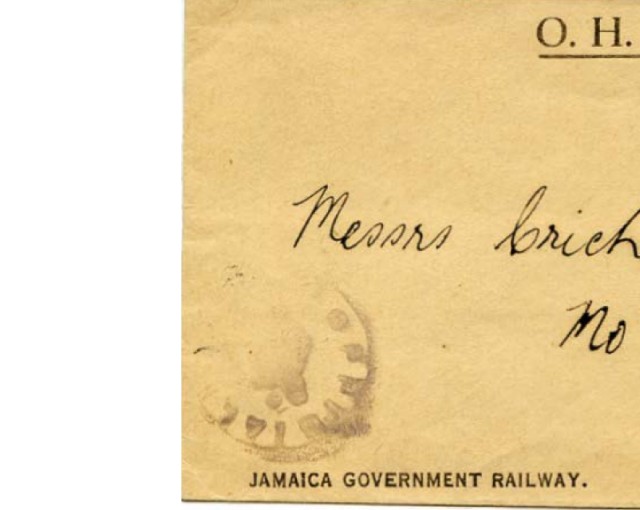 O. H.
Messrs Crich
Mo
JAMAICA GOVERNMENT RAILWAY.